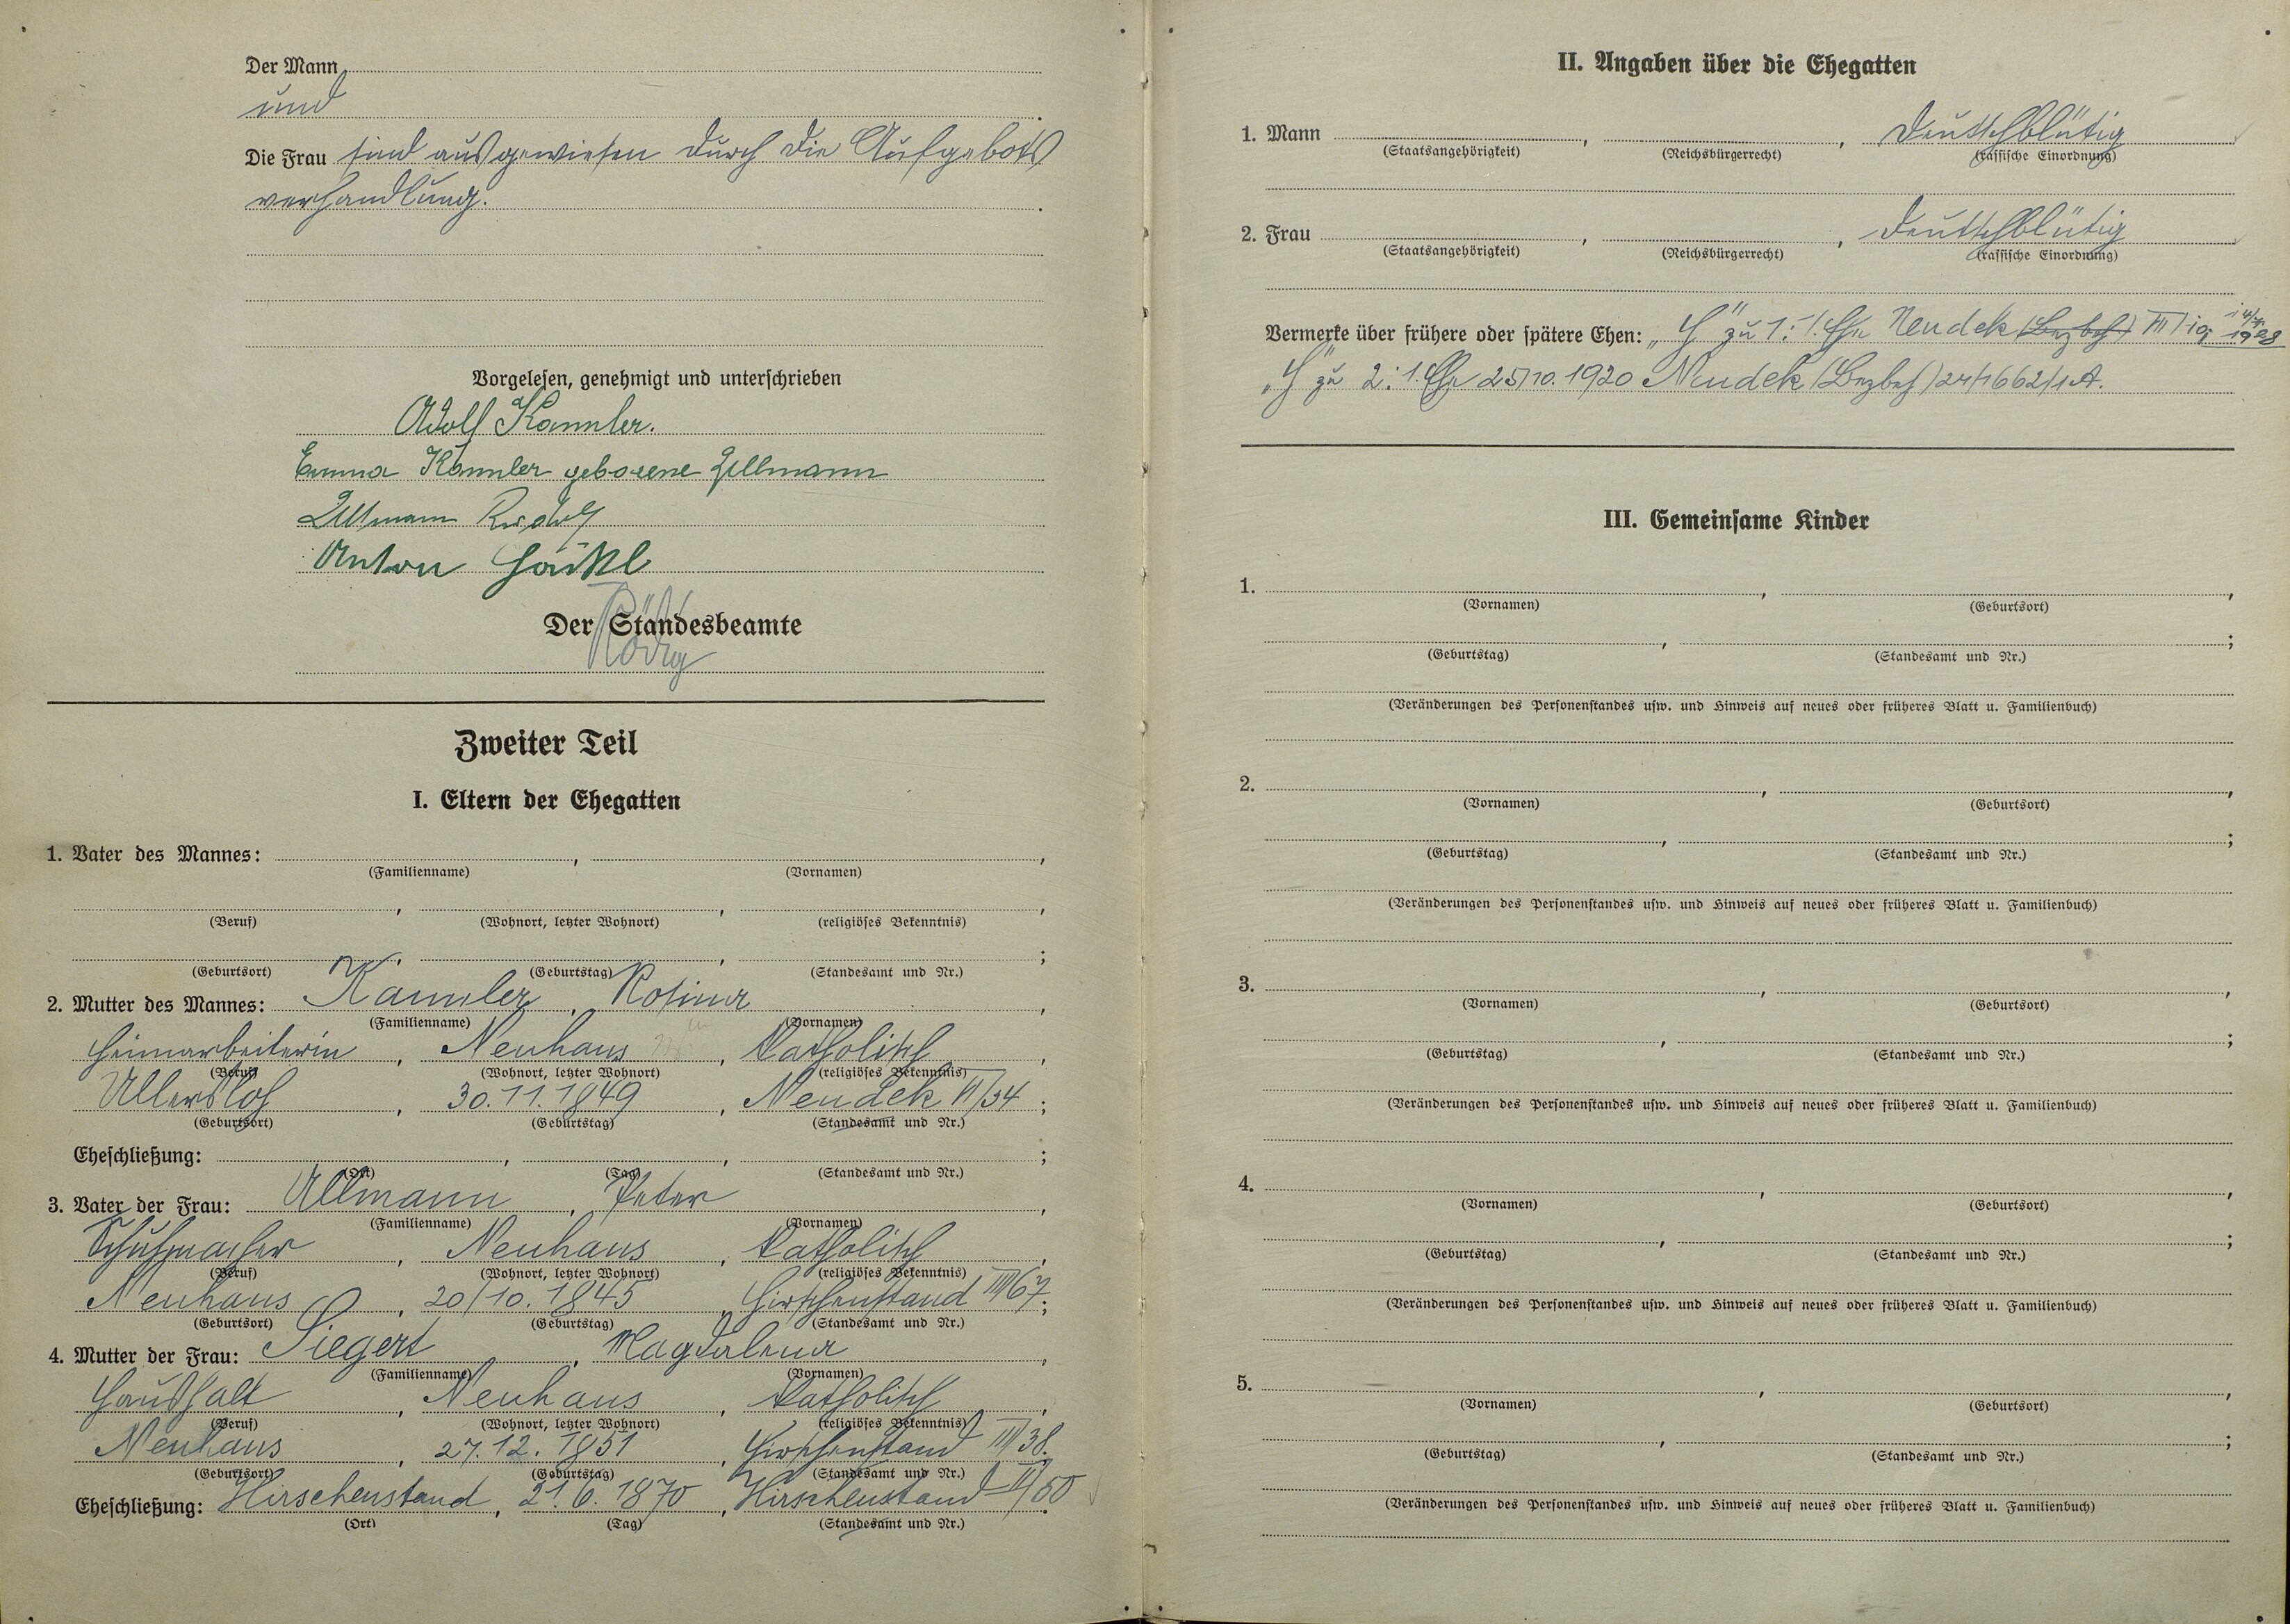 Der Mann
und
Die Frau sind ausgewiesen durch die Aufgebots
verhandlung.
Vorgelesen, genehmigt und unterschrieben
Adolf Kannler.
Emma Kannler geborene Ullmann
Ullmann Rudolf
Anton
Der Standesbeamte
Zweiter Teil
I. Eltern der Ehegatten
1. Vater des Mannes: , ,
(Familienname) (Vornamen)
, , ,
(Beruf) (Wohnort, letzter Wohnort) (religiöses Bekenntnis)
, , ;
(Geburtsort) (Geburtstag) (Standesamt und Nr.)
2. Mutter des Mannes: Kannler, Rosina,
(Familienname) (Vornamen)
Heimarbeiterin, Neuhaus, katholisch,
(Beruf) (Wohnort, letzter Wohnort) (religiöses Bekenntnis)
Ullersloh, 30.11.1849, Neudek VI/34;
(Geburtsort) (Geburtstag) (Standesamt und Nr.)
Eheschließung: , , ;
(Ort) (Tag) (Standesamt und Nr.)
3. Vater der Frau: Ullmann, Peter,
(Familienname) (Vornamen)
Schuhmacher, Neuhaus, katholisch,
(Beruf) (Wohnort, letzter Wohnort) (religiöses Bekenntnis)
Neuhaus, 20/10.1845, Hirschenstand III/67;
(Geburtsort) (Geburtstag) (Standesamt und Nr.)
4. Mutter der Frau: Siegert, Magdalena,
(Familienname) (Vornamen)
Haushalt, Neuhaus, katholisch,
(Beruf) (Wohnort, letzter Wohnort) (religiöses Bekenntnis)
Neuhaus, 27.12.1851, Hirschenstand III/38.
(Geburtsort) (Geburtstag) (Standesamt und Nr.)
Eheschließung: Hirschenstand, 21.6.1870, Hirschenstand II/50
(Ort) (Tag) (Standesamt und Nr.)
II. Angaben über die Ehegatten
1. Mann , , deutschblütig
(Staatsangehörigkeit) (Reichsbürgerrecht) (rassische Einordnung)
2. Frau , , deutschblütig
(Staatsangehörigkeit) (Reichsbürgerrecht) (rassische Einordnung)
Vermerke über frühere oder spätere Ehen: „H" zu 1: 1. Ehe Neudek
„H" zu 2: 1. Ehe 25/10.1920 Neudek (Bezbeh) 24/1662/1A.
III. Gemeinsame Kinder
1. , ,
(Vornamen) (Geburtsort)
, ;
(Geburtstag) (Standesamt und Nr.)
(Veränderungen des Personenstandes usw. und Hinweis auf neues oder früheres Blatt u. Familienbuch)
2. , ,
(Vornamen) (Geburtsort)
, ;
(Geburtstag) (Standesamt und Nr.)
(Veränderungen des Personenstandes usw. und Hinweis auf neues oder früheres Blatt u. Familienbuch)
3. , ,
(Vornamen) (Geburtsort)
, ;
(Geburtstag) (Standesamt und Nr.)
(Veränderungen des Personenstandes usw. und Hinweis auf neues oder früheres Blatt u. Familienbuch)
4. , ,
(Vornamen) (Geburtsort)
, ;
(Geburtstag) (Standesamt und Nr.)
(Veränderungen des Personenstandes usw. und Hinweis auf neues oder früheres Blatt u. Familienbuch)
5. , ,
(Vornamen) (Geburtsort)
, ;
(Geburtstag) (Standesamt und Nr.)
(Veränderungen des Personenstandes usw. und Hinweis auf neues oder früheres Blatt u. Familienbuch)